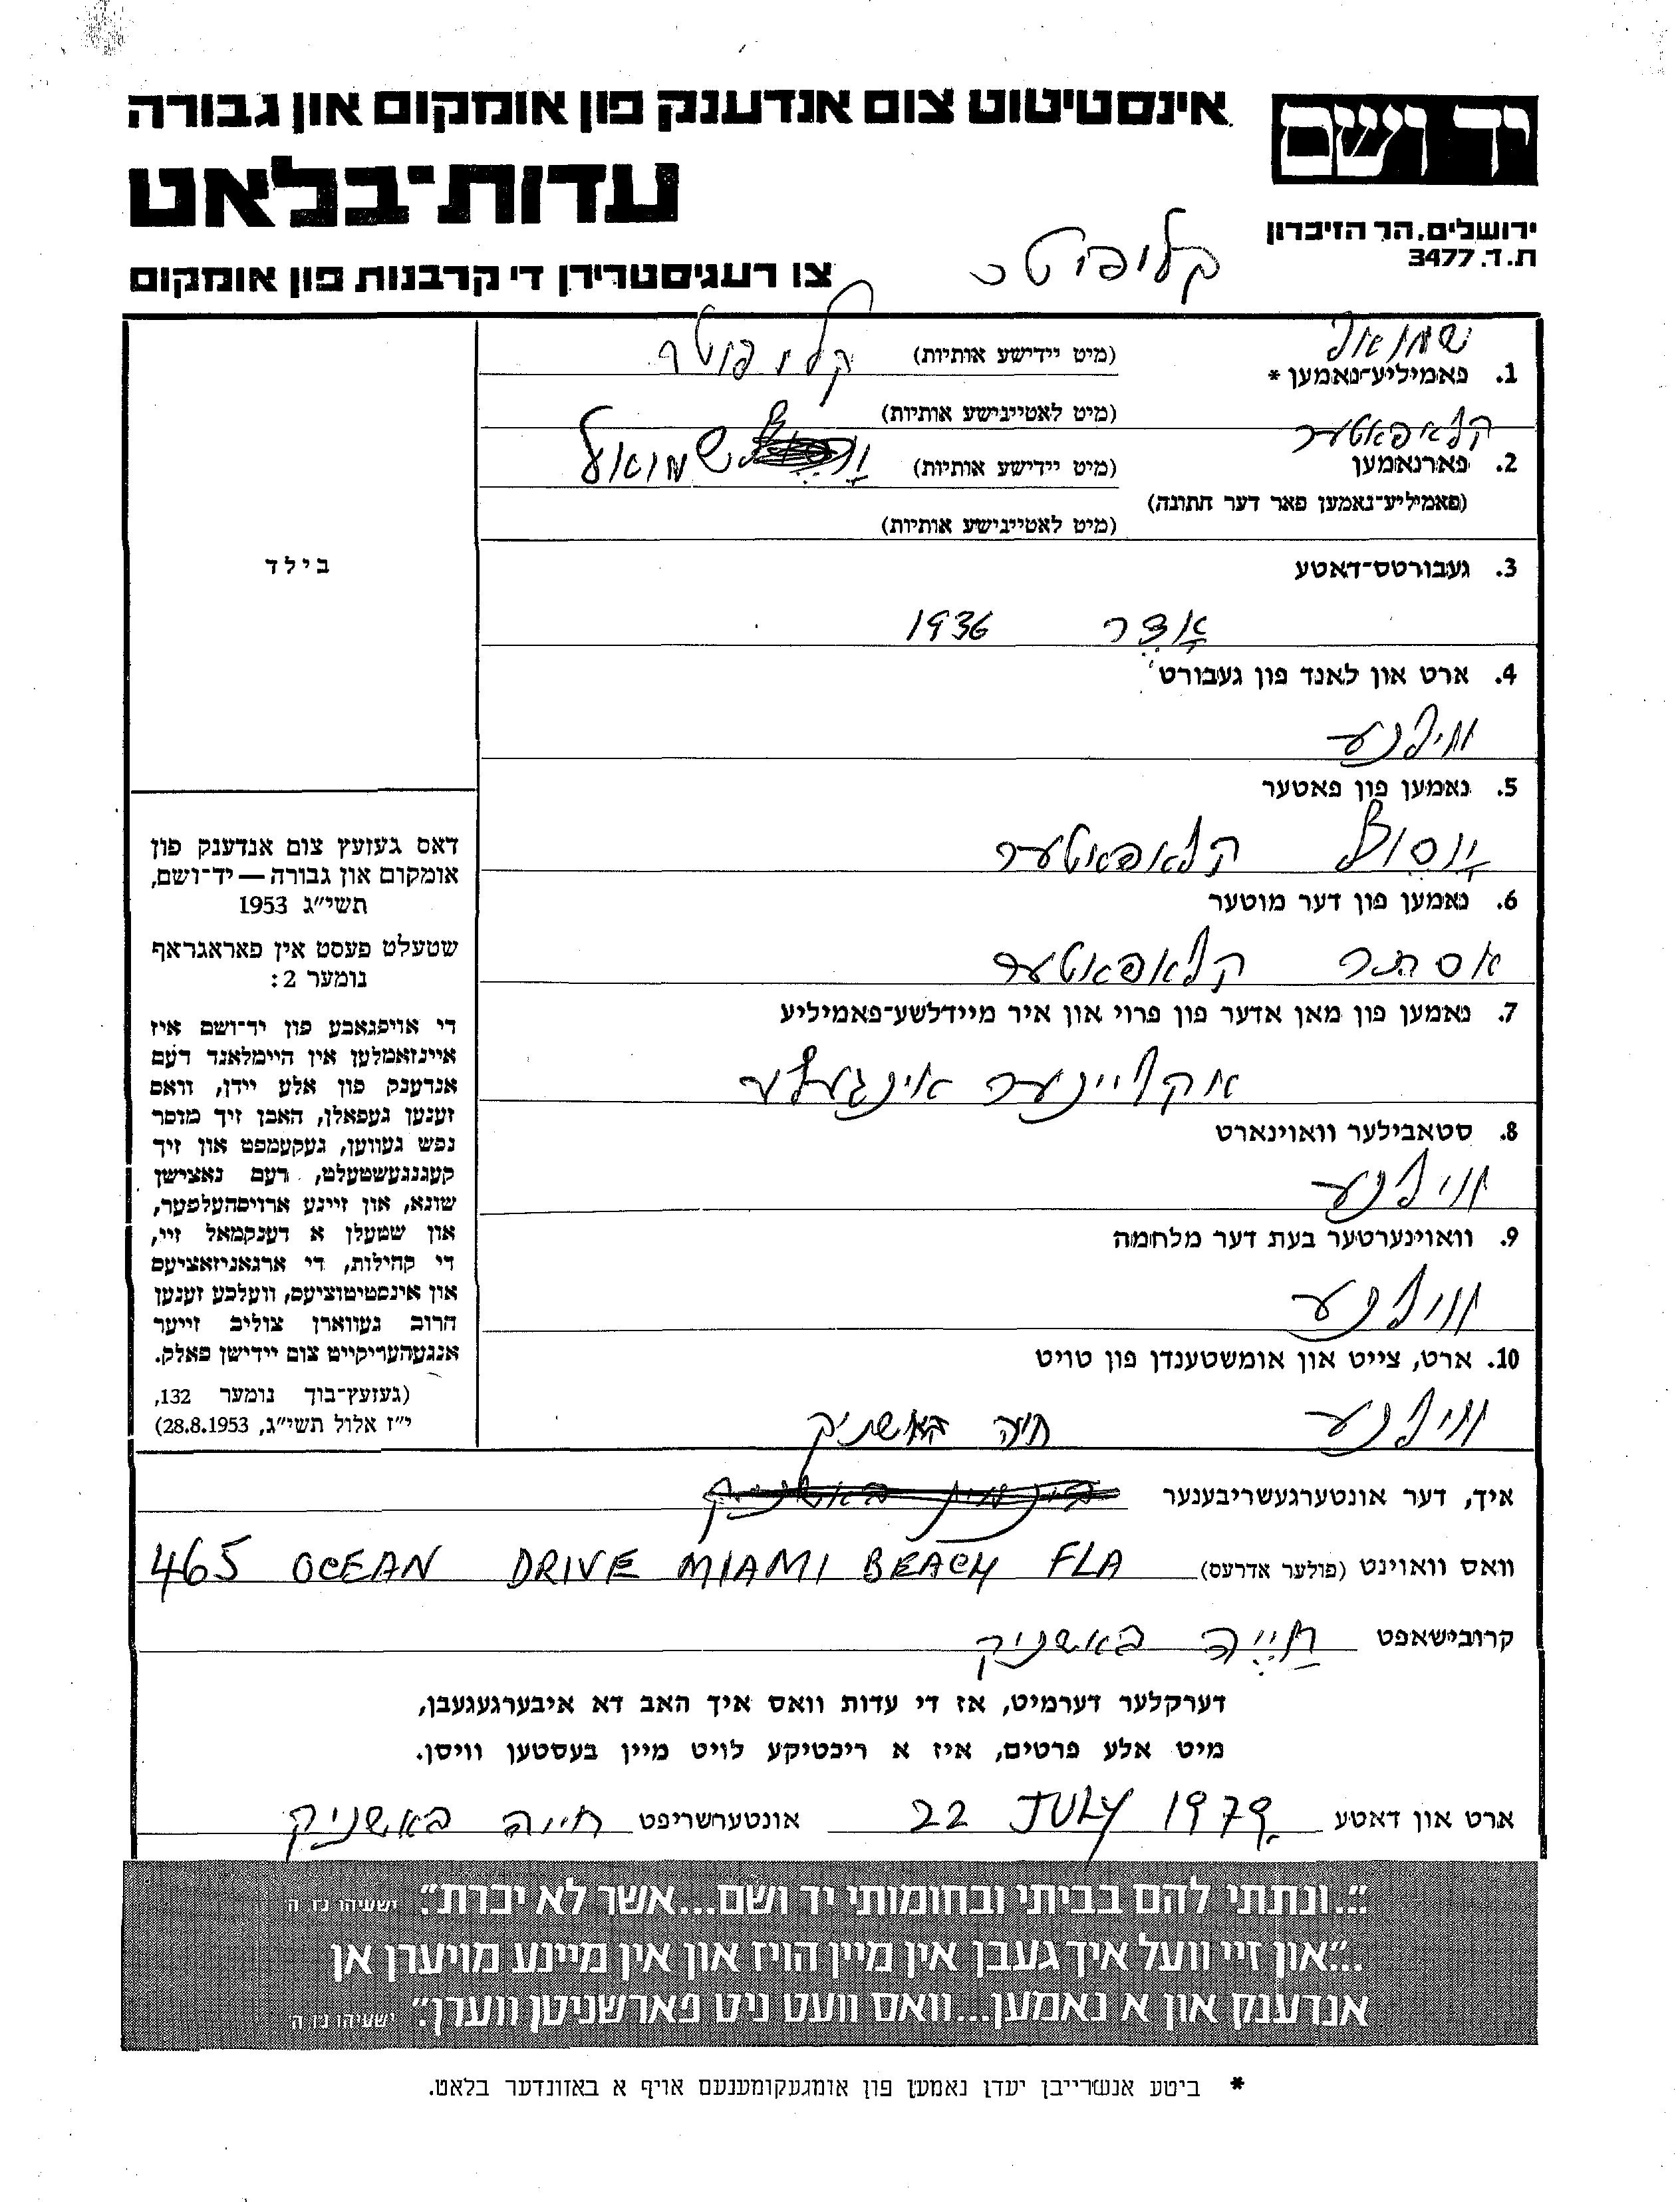 אינסטיטוט צום אנדענק פון אומקום און גבורה
יד ושם
עדות־בלאט
ירושלים, הר הזיכרון
ת.ד. 3477
צו רעגיסטרירן די קרבנות פון אומקום
קלופיטר
שמואל
1. פאמיליע־נאמען * (מיט יידישע אותיות) קליופטר
(מיט לאטייניшע אותיות)
קלאפאטער
2. פארנאמען (מיט יידישע אותיות) שמואל
(פאמיליע־נאמען פאר דער חתונה)
(מיט לאטיינישע אותיות)
3. געבורטס־דאטע
אָדר 1936
4. ארט און לאנד פון געבורט
ווילנע
5. נאמען פון פאטער
יוסף קלאפאטער
6. נאמען פון דער מוטער
אסתר קלאפאטער
7. נאמען פון מאן אדער פון פרוי און איר מיידלשע־פאמיליע
א קליינער אינגעלע
8. סטאבילער וואוינארט
ווילנע
9. וואוינערטער בעת דער מלחמה
ווילנע
10. ארט, צייט און אומשטענדן פון טויט
ווילנע חיה באשניק
בילד
דאס געזעץ צום אנדענק פון
אומקום און גבורה — יד־ושם,
תשי"ג 1953
שטעלט פעסט אין פאראגראף
נומער 2:
די אויפגאבע פון יד־ושם איז
איינזאמלען אין היימלאנד דעם
אנדענק פון אלע יידן, וואס
זענען געפאלן, האבן זיך מוסר
נפש געווען, געקעמפט און זיך
קעגנגעשטעלט, דעם נאצישן
שונא, און זיינע ארויסהעלפער,
און שטעלן א דענקמאל זיי,
די קהילות, די ארגאניזאציעס
און אינסטיטוציעס, וועלכע זענען
חרוב געווארן צוליב זייער
אנגעהעריקייט צום יידישן פאלק.
(געזעץ־בוך נומער 132,
י"ז אלול תשי"ג, 28.8.1953)
איך, דער אונטערגעשריבענער
וואס וואוינט (פולער אדרעס) 465 OCEAN DRIVE MIAMI BEACH FLA
קרובישאפט חַיָיה באשניק
דערקלער דערמיט, אז די עדות וואס איך האב דא איבערגעגעבן,
מיט אלע פרטים, איז א ריכטיקע לויט מיין בעסטען וויסן.
ארט און דאטע 22 JULY 1979 אונטערשריפט חייה באשניק
"...ונתתי להם בביתי ובחומותי יד ושם...אשר לא יכרת". ישעיהו נו, ה
..."און זיי וועל איך געבן אין מיין הויז און אין מיינע מויערן אן
אנדענק און א נאמען...וואס וועט ניט פארשניטן ווערן". ישעיהו נו, ה
* ביטע אנשרייבן יעדן נאמען פון אומגעקומענעם אויף א באזונדער בלאט.